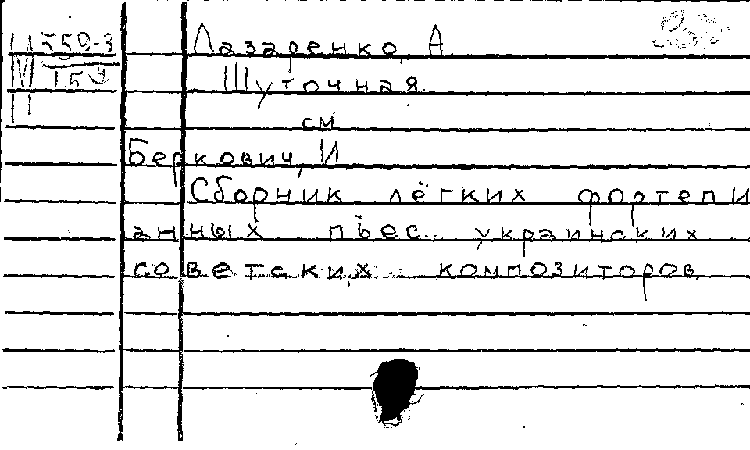 Лазаренко, А
559-3
Шуточная
см
Беркович, И
Сборник лёгких фортепи
анных пьес украинских
советских композиторов